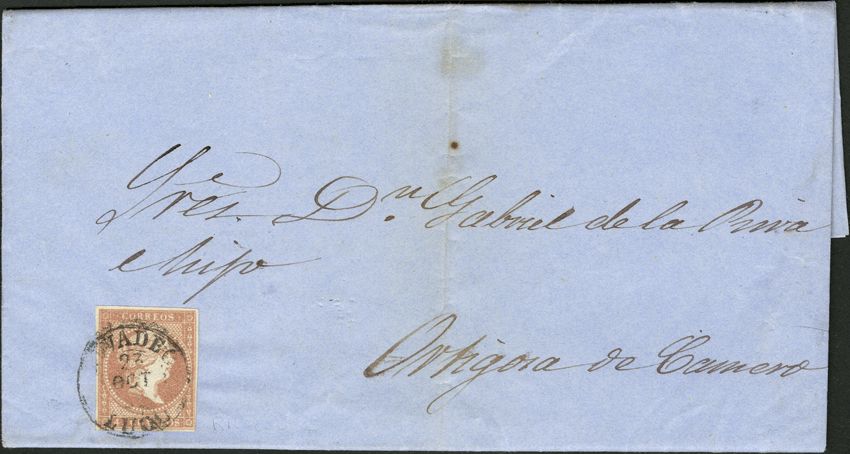 Sres. Dn. Gabriel de la Riva
e hijo
Ortigosa de Camero
CORREOS
VADE
23
OCT
LUGO